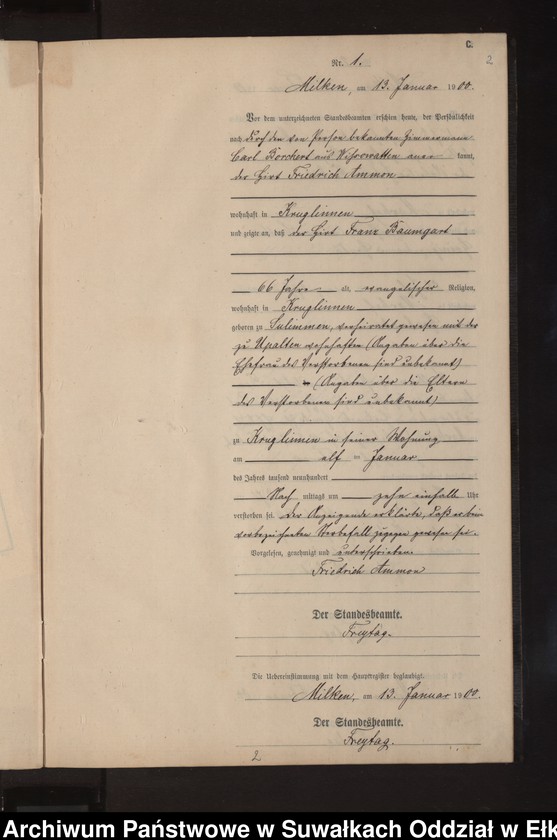 C.
2
Nr. 1.
Milken, am 13. Januar 1900.
Vor dem unterzeichneten Standesbeamten erschien heute, der Persönlichkeit
nach durch den von Person bekannten Zimmermann
Carl Borchert aus kannt,
der Hirt Friedrich Ammon
wohnhaft in Kruglinnen
und zeigte an, daß der Hirt Franz Baumgart
66 Jahre alt, evangelischer Religion,
wohnhaft in Kruglinnen
geboren zu Sulimmen, verheiratet gewesen mit der
zu Upalten wohnhaften (Angaben über die
Ehefrau des Verstorbenen sind unbekannt)
(Angaben über die Eltern
des Verstorbenen sind unbekannt)
zu Kruglinnen in seiner Wohnung
am elf = Januar
des Jahres tausend neunhundert
Nach mittags um zehn einhalb Uhr
verstorben sei. Der Anzeigende erklärte, daß er beim
vorbezeichneten Sterbefall zugegen gewesen sei.
Vorgelesen, genehmigt und unterschrieben.
Friedrich Ammon
Der Standesbeamte.
Freytag.
Die Uebereinstimmung mit dem Hauptregister beglaubigt.
Milken, am 13. Januar 1900.
Der Standesbeamte.
Freytag.
2
Archiwum Państwowe w Suwałkach Oddział w Ełk